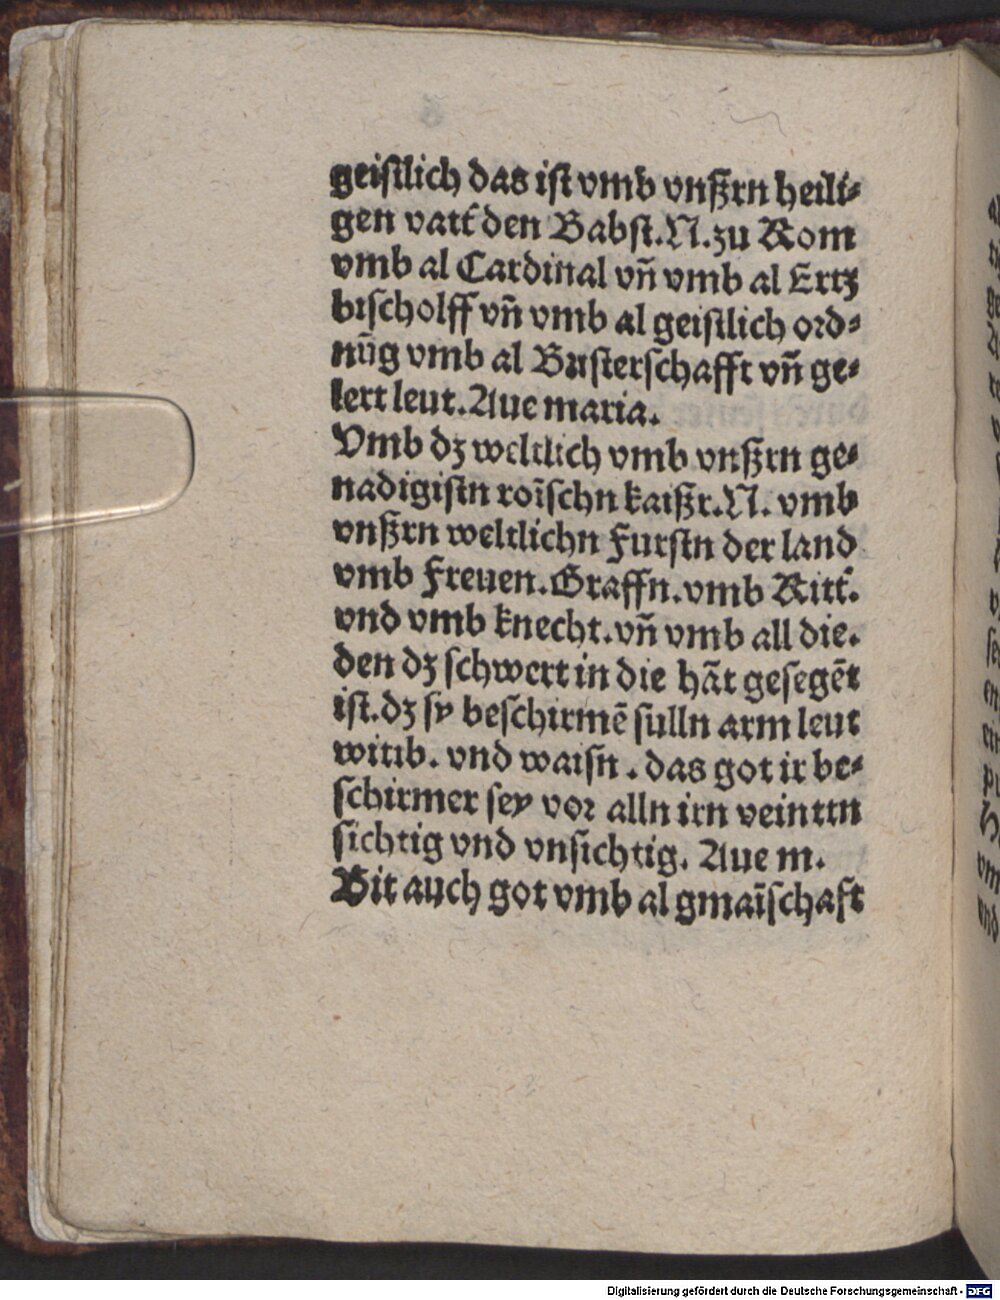 geistlich das ist vmb vnßrn heili⸗
gen vatt̃ den Babst.N.zu Rom
vmb al Cardinal vñ vmb al Ertz
bischolff vñ vmb al geistlich ord⸗
nũg vmb al Bristerschafft vñ ge⸗
lert leut.Aue maria.
Vmb dʒ weltlich vmb vnßrn ge⸗
nadigistn roĩschn kaißr.N. vmb
vnßrn weltlichn Furstn der land
vmb Freuen.Graffn.vmb Ritt̃.
vnd vmb knecht.vñ vmb all die.
den dʒ schwert in die hãt gesegẽt
ist.dʒ sy beschirmẽ sulln arm leut
witib. vnd waisn . das got ir be⸗
schirmer sey vor alln irn veinttn
sichtig vnd vnsichtig. Aue m.
Bit auch got vmb al gmaĩschaft
Digitalisierung gefördert durch die Deutsche Forschungsgemeinschaft - DFG